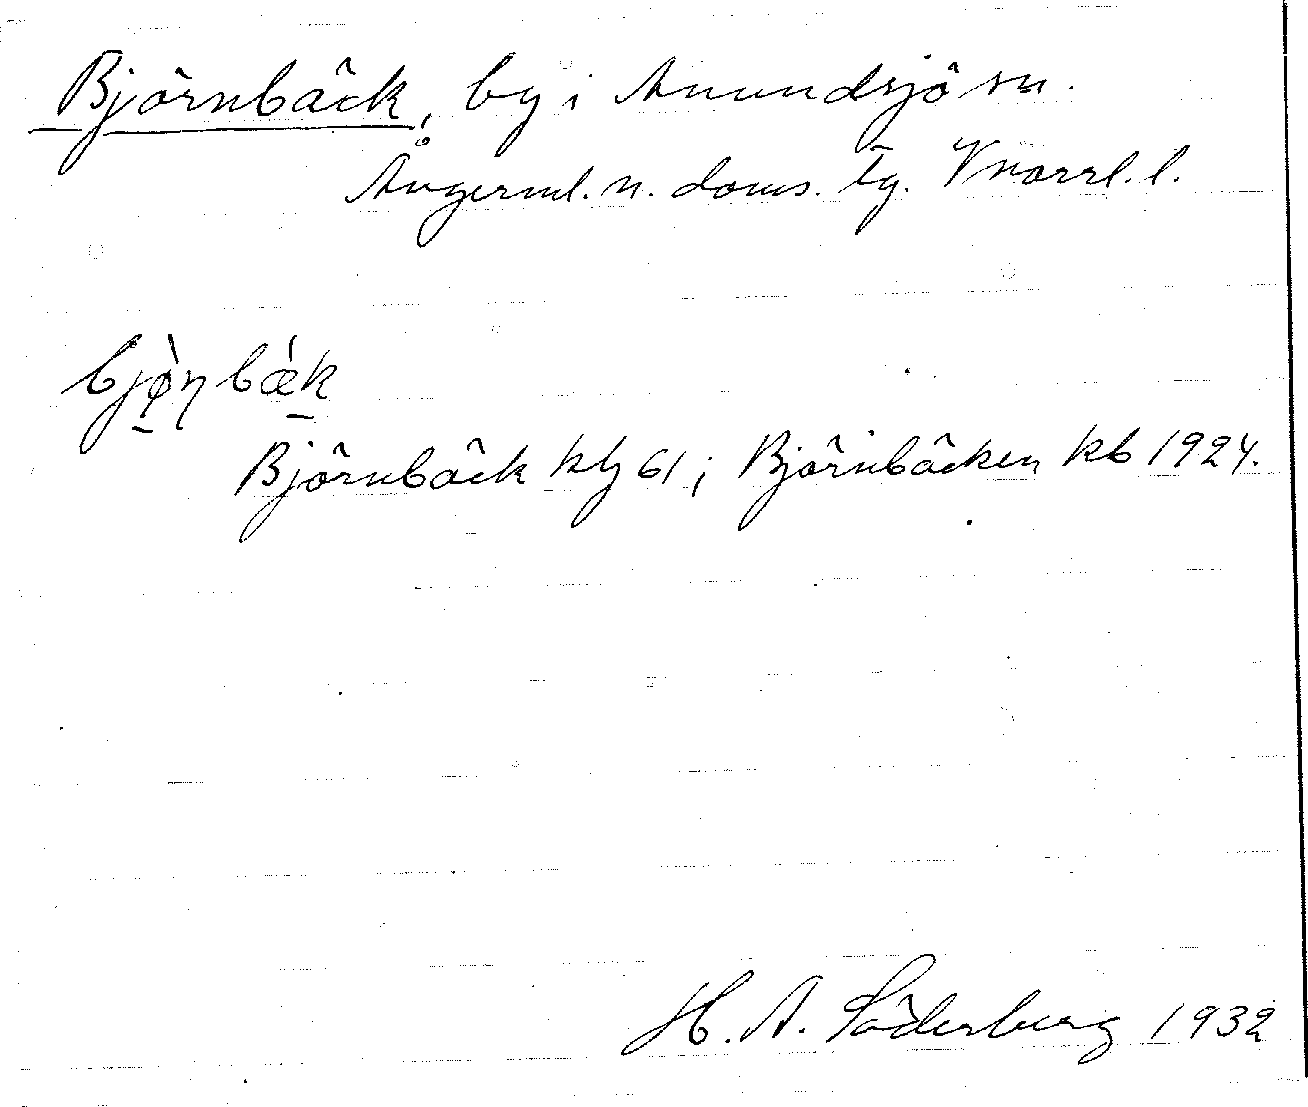 Björnbäck, by i Anundsjö sn.
Ångerml. n. doms. tg. Vnorrl. l.
bjø̀ɳbǽk
Björnbäck klj 61; Björnbäcken kb 1924.
H. A. Söderberg 1932